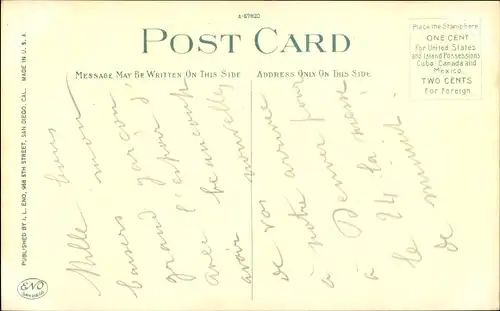 A-67920
POST CARD
MESSAGE MAY BE WRITTEN ON THIS SIDE
ADDRESS ONLY ON THIS SIDE
Place the Stamp here
ONE CENT
For United States
and Island Possessions
Cuba, Canada and
Mexico.
TWO CENTS
For Foreign.
PUBLISHED BY I. L. ENO, 968 5TH STREET, SAN DIEGO, CAL. MADE IN U. S. A.
ENO
SAN DIEGO
Mille bons
baisers mon
grand garçon, j'
avec l'espoir d'
avoir beaucoup
nouvelles
de vos
à notre arrivée
à Denver pour
le 24 la
de minuit